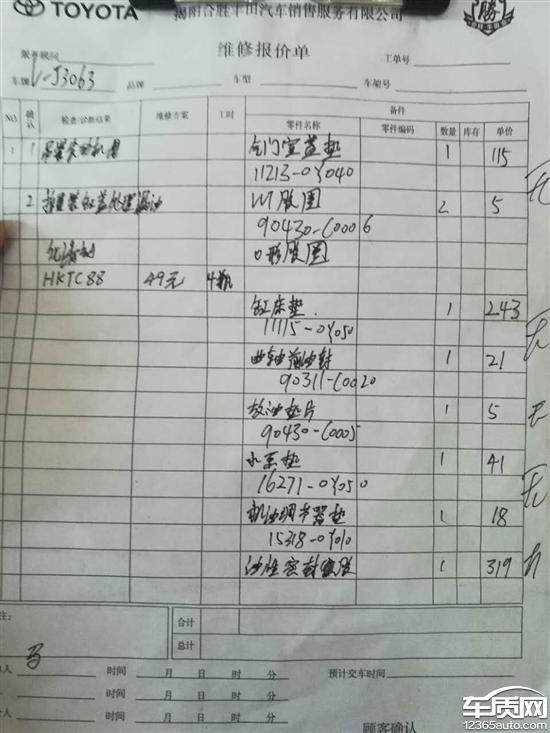 TOYOTA 揭阳合胜丰田汽车销售服务有限公司 勝
维修报价单
服务顾问 工单号
车牌 J3063 品牌 车型 车架号
NO. 确认 检查/诊断结果 维修方案 工时 备件
零件名称 零件编码 数量 库存 单价
1 气门室盖垫 1 115
11213-0Y040
2 胶圈 2 5
90430-C0006
O形胶圈
HKTC88 49元 4瓶
缸床垫 1 243
11115-0Y050
曲轴前油封 1 21
90311-C0020
放油垫片 1 5
90430-C0005
水泵垫 1 41
16271-0Y050
机油调节器垫 1 18
15318-0Y010
油性密封胶 1 319
注: 合计
总计
时间 月 日 时 分 预计交车时间:
时间 月 日 时 分
时间 月 日 时 分 顾客确认
车质网
12365auto.com